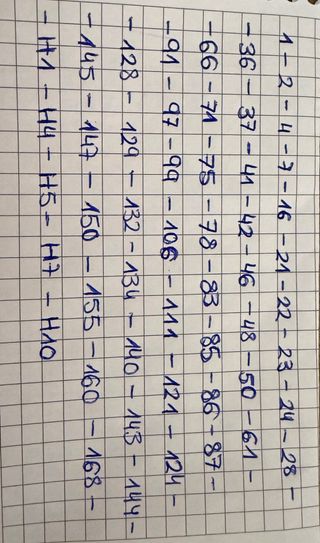 1 - 2 - 4 - 7 - 16 - 21 - 22 - 23 - 24 - 28 -
- 36 - 37 - 41 - 42 - 46 - 48 - 50 - 61 -
- 66 - 71 - 75 - 78 - 83 - 85 - 86 - 87 -
- 91 - 97 - 99 - 106 - 111 - 121 - 124 -
- 128 - 129 - 132 - 134 - 140 - 143 - 144 -
- 145 - 147 - 150 - 155 - 160 - 168 -
- H1 - H4 - H5 - H7 - H10